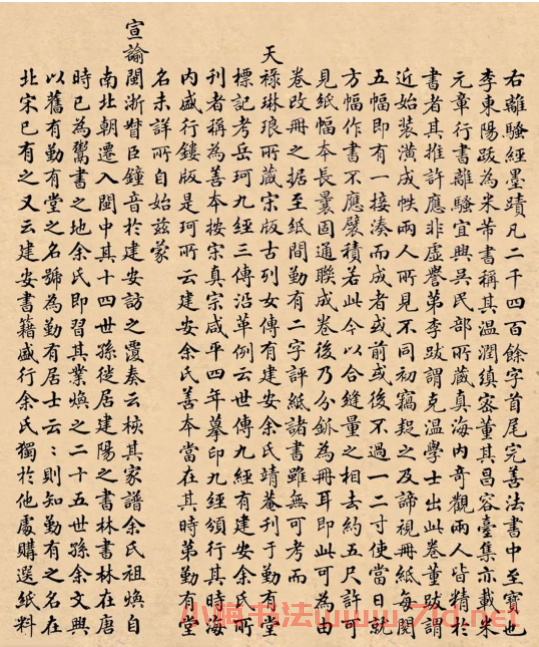 右離騷經墨蹟凡二千四百餘字首尾完善法書中至寶也
李東陽跋為米芾書稱其温潤縝密董其昌容臺集亦載米
元章行書離騷宜興吳民部所藏真海内奇觀兩人皆精於
書者其推許應非虛譽第李跋謂克温學士出此卷董跋謂
近始装潢成帙兩人所見不同初竊疑之及諦視冊紙每閱
五幅即有一接湊而成者或前或後不過一二寸使當日就
方幅作書不應襞積若此今以合縫量之相去約五尺許可
見紙幅本長曩固通聯成卷後乃分鈲為冊耳即此可為由
卷改冊之据至紙間勤有二字評紙諸書雖無可考而
天祿琳琅所藏宋版古列女傳有建安余氏靖菴刊于勤有堂
標記考岳珂九經三傳沿革例云世傳九經有建安余氏所
刊者稱為善本按宋真宗咸平四年摹印九經頒行其時海
内盛行鏤版是珂所云建安余氏善本當在其時第勤有堂
名未詳所自始兹蒙
宣諭閩浙督臣鐘音於建安訪之覆奏云核其家譜余氏祖煥自
南北朝遷入閩中其十四世孫徙居建陽之書林書林在唐
時已為鬻書之地余氏即習其業煥之二十五世孫余文興
以舊有勤有堂之名號為勤有居士云云則知勤有之名在
北宋已有之又云建安書籍盛行余氏獨於他處購選紙料